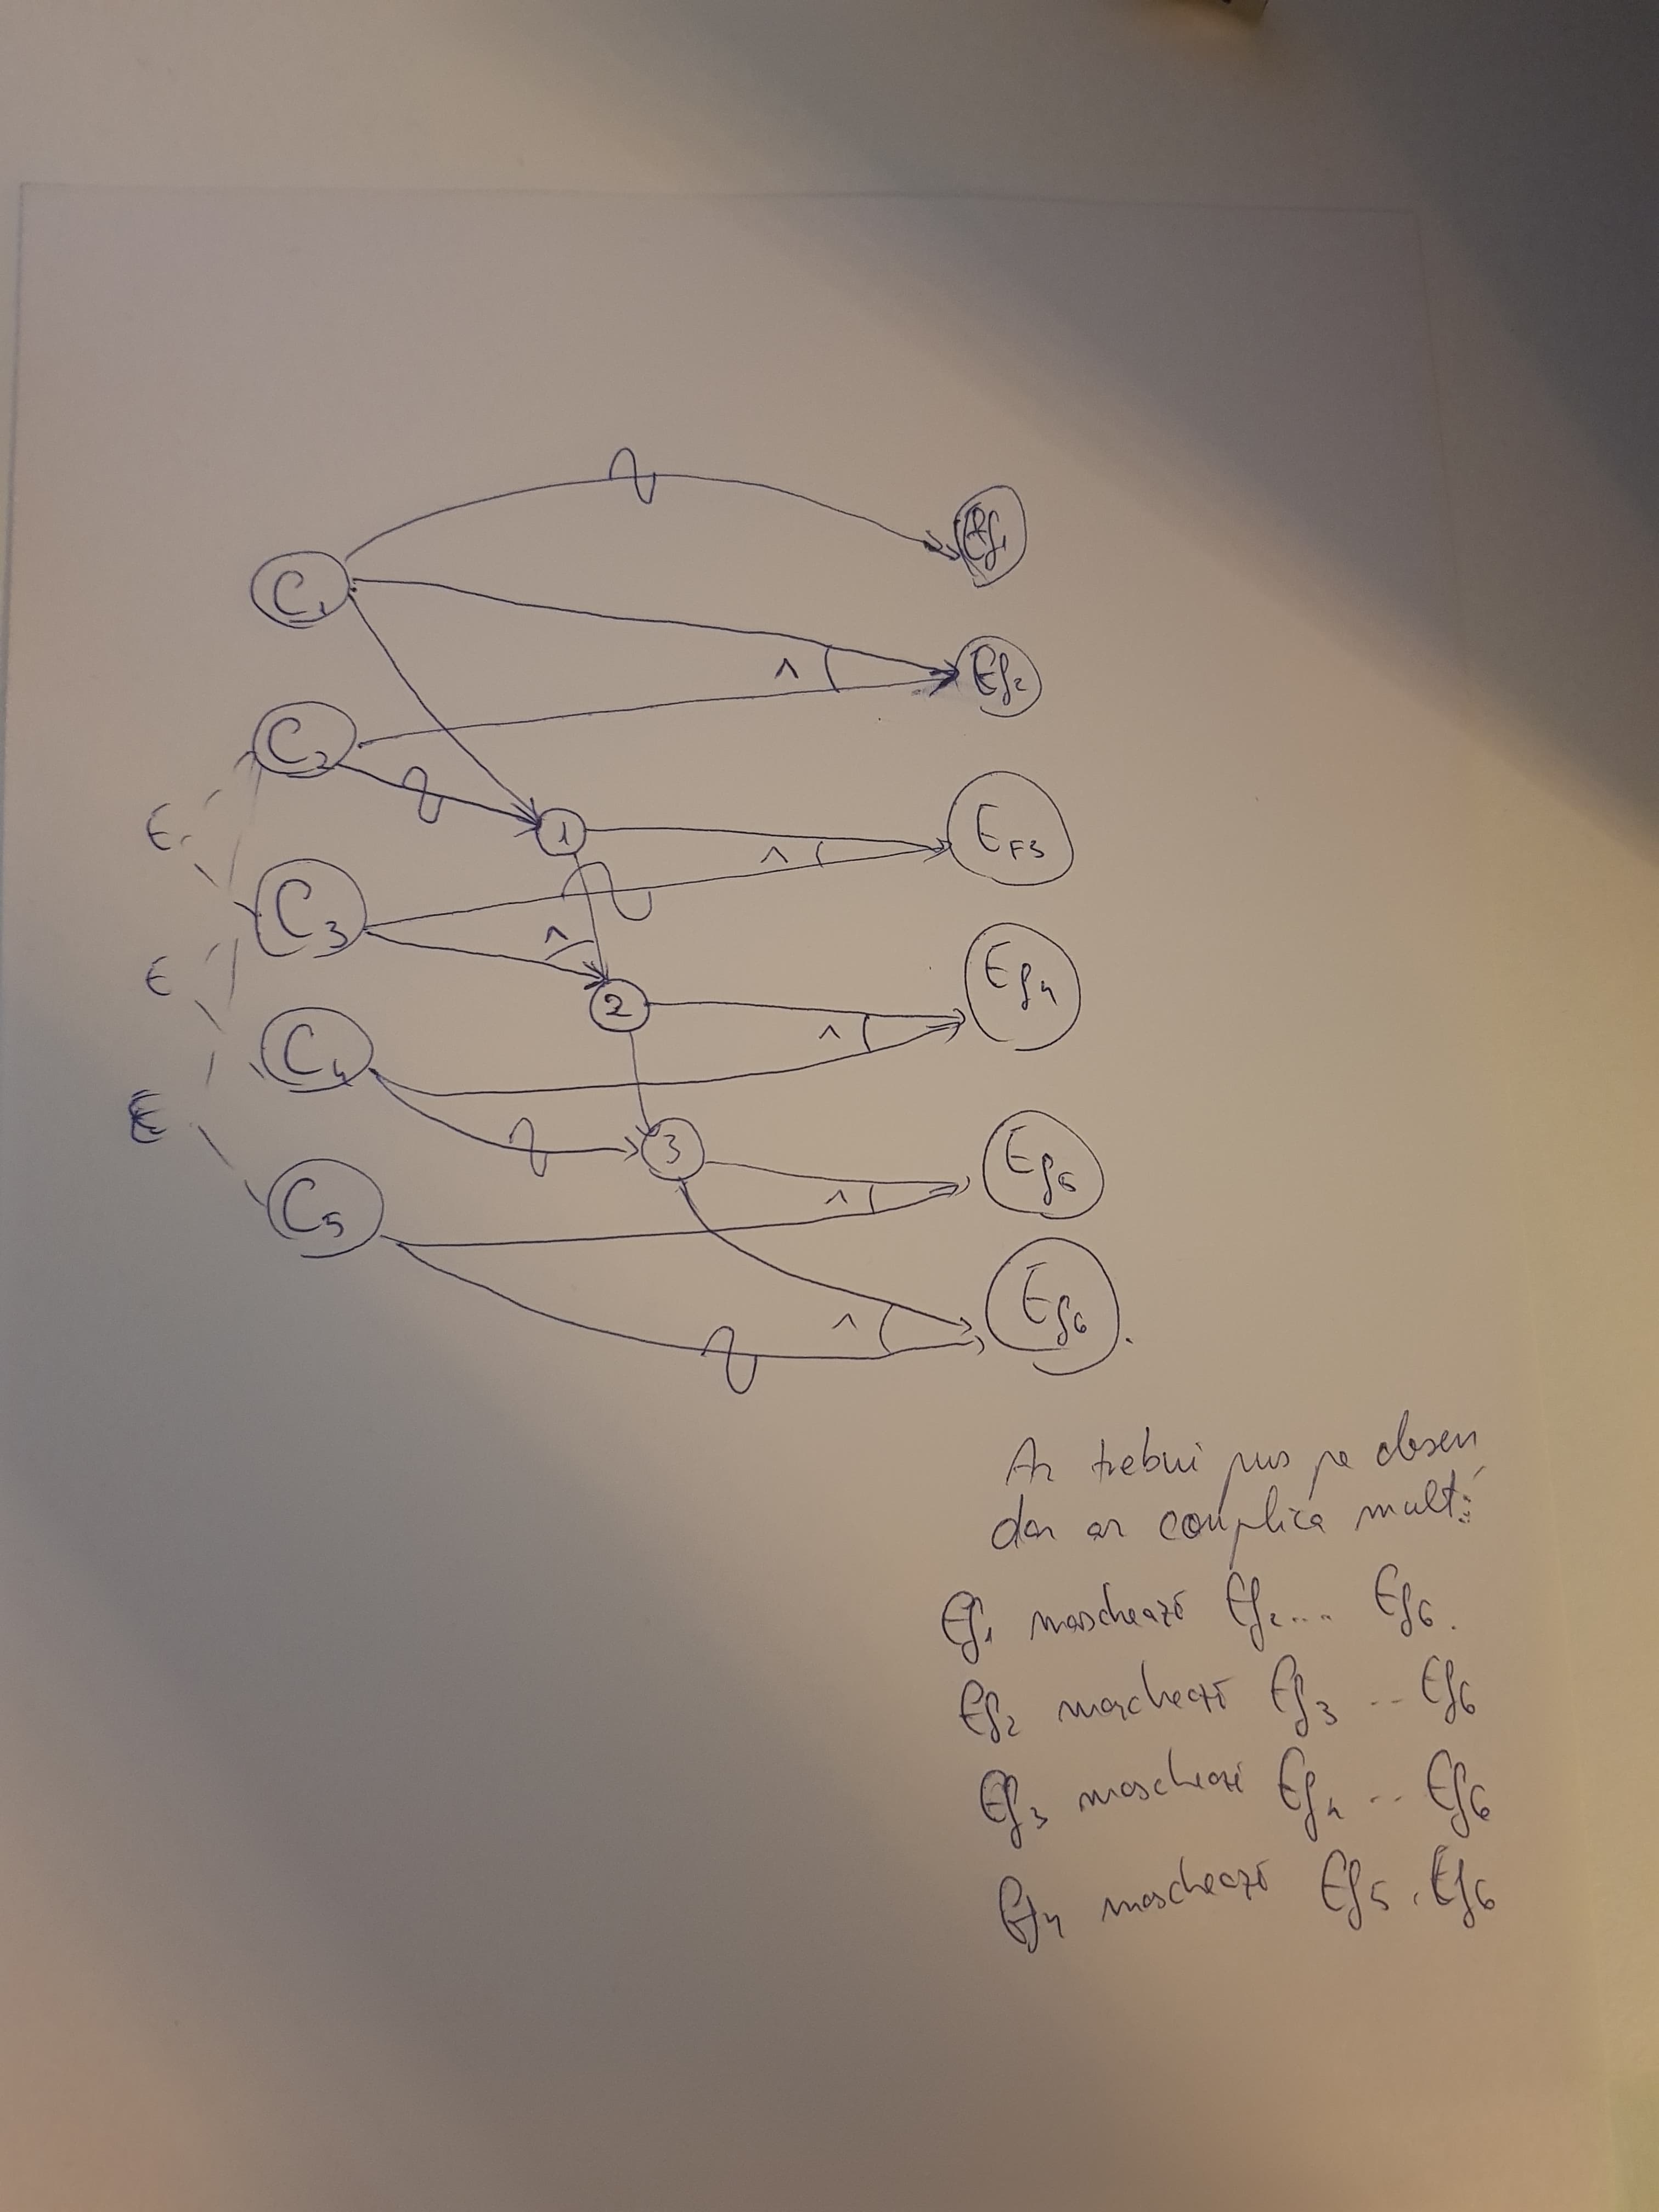 Ef1
C1
^
Ef2
C2
E
1
^
EF3
C3
^
E
2
^
Ef4
C4
E
3
^
Ef5
C5
^
Ef6
Ar trebui pus pe desen
dar ar complica mult:
Ef1 maschează Ef2.... Ef6.
Ef2 maschează Ef3 .. Ef6
Ef3 maschează Ef4 .. Ef6
Ef4 maschează Ef5, Ef6